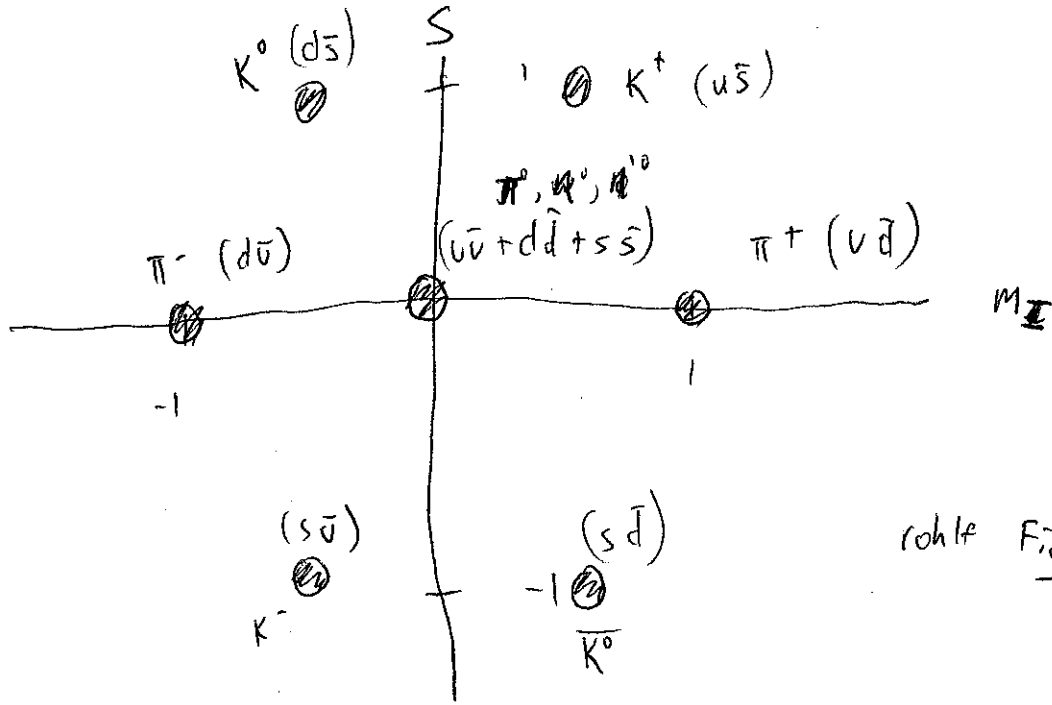 S
K⁰ (ds̄)
1
K⁺ (us̄)
π⁰, η⁰, η'⁰
(uū + dd̄ + ss̄)
π⁻ (dū)
π⁺ (ud̄)
M_I
-1
1
(sū)
(sd̄)
-1
K⁻
K̄⁰
rohlf